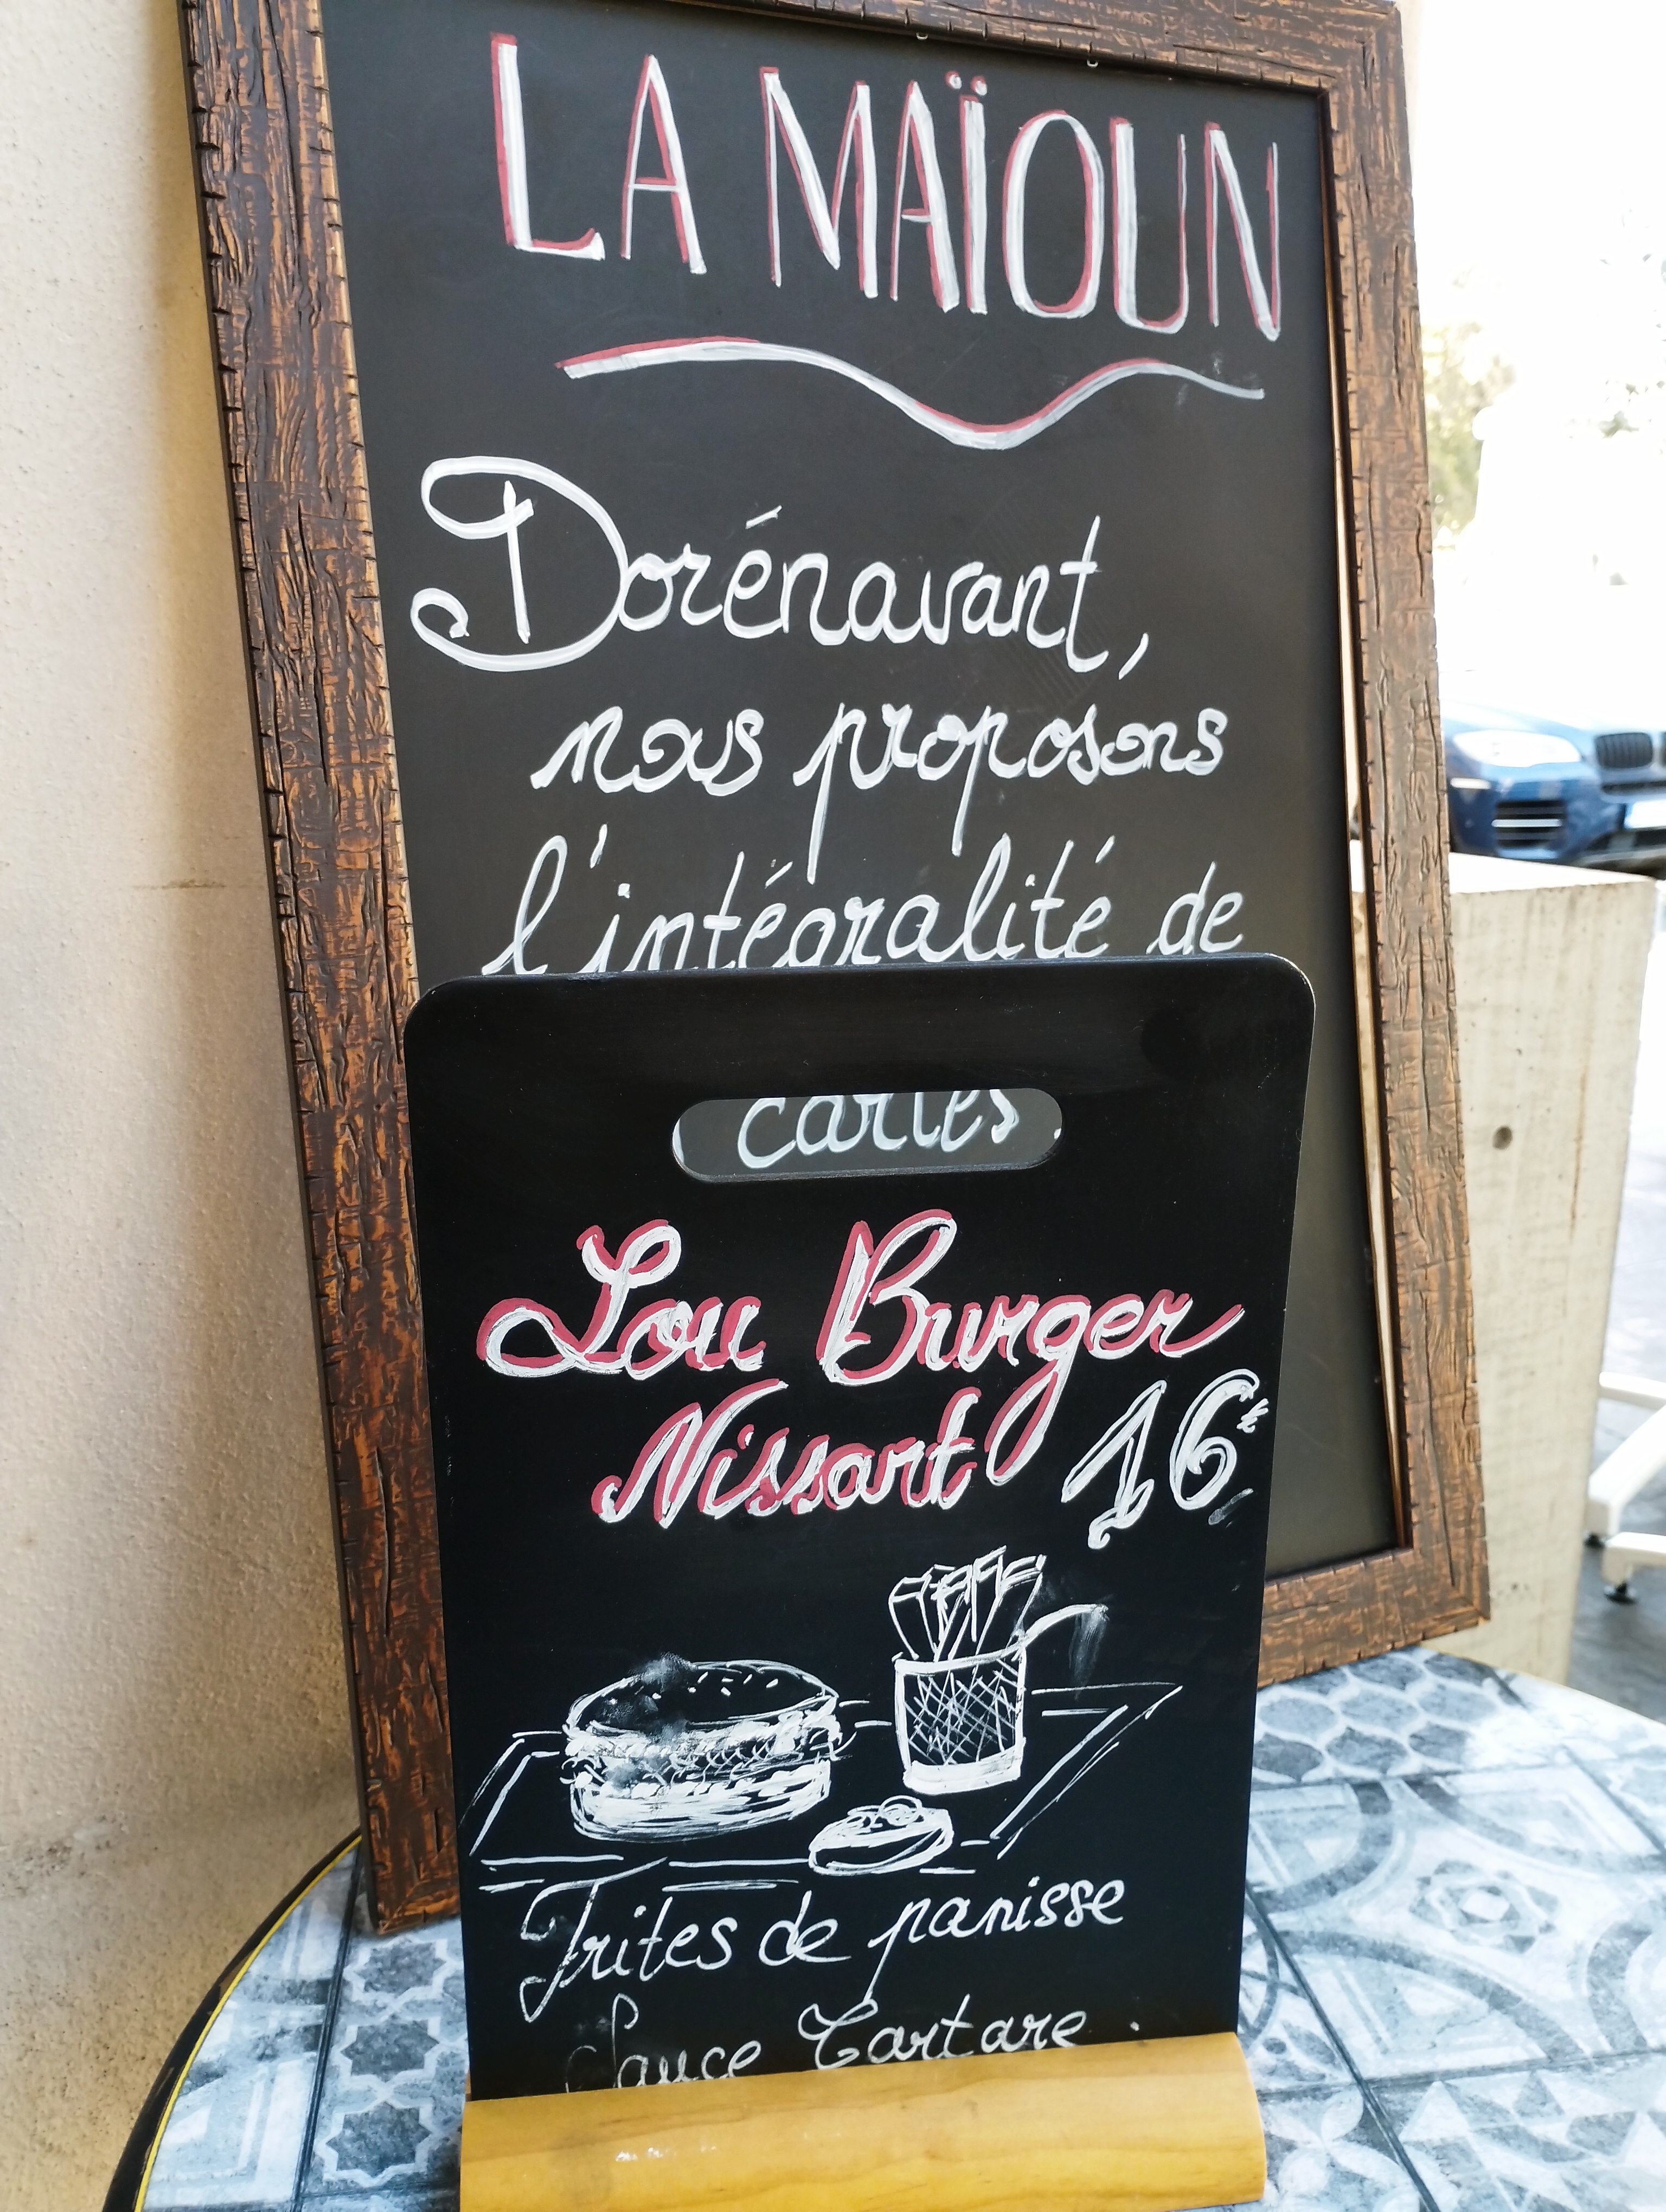 LA MAÏOUN
Dorénavant,
nous proposons
l'intégralité de
cartes
Lou Burger
Nissart 16€
Frites de panisse
Sauce Tartare.